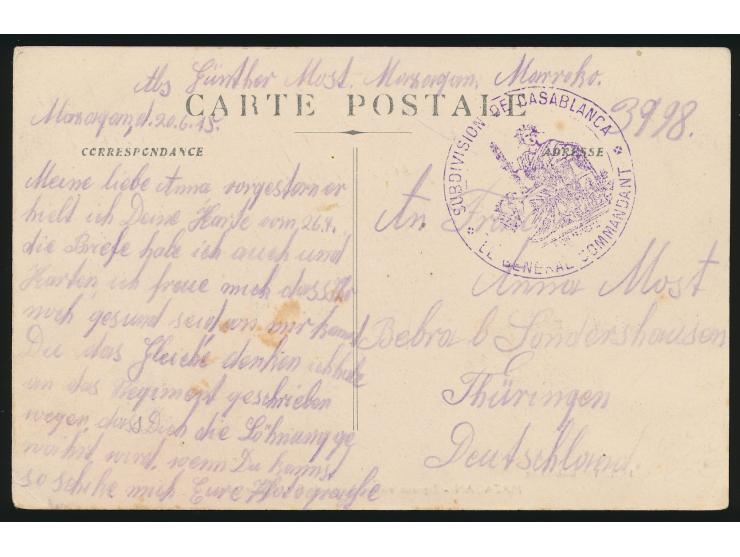 Abs Günther Most. Mazagan, Marroko.
CARTE POSTALE
Mazagan, d. 20.6.15.
3998.
CORRESPONDANCE
ADRESSE
SUBDIVISION DE CASABLANCA
LE GENERAL COMMANDANT
Meine liebe Anna vorgestern er
hielt ich Deine Karte vom 26.4.
die Briefe habe ich auch und
Karten, ich freue mich dass Ihr
noch gesund seid von mir kannst
Du das Gleiche denken ich habe
an das Regiment geschrieben
wegen, dass Dich die Löhnung ge
währt wird, wenn Du kannst
so schike mich Eure Photographie
An Frau
Anna Most
Bebra b Sondershausen
Thüringen
Deutschland.